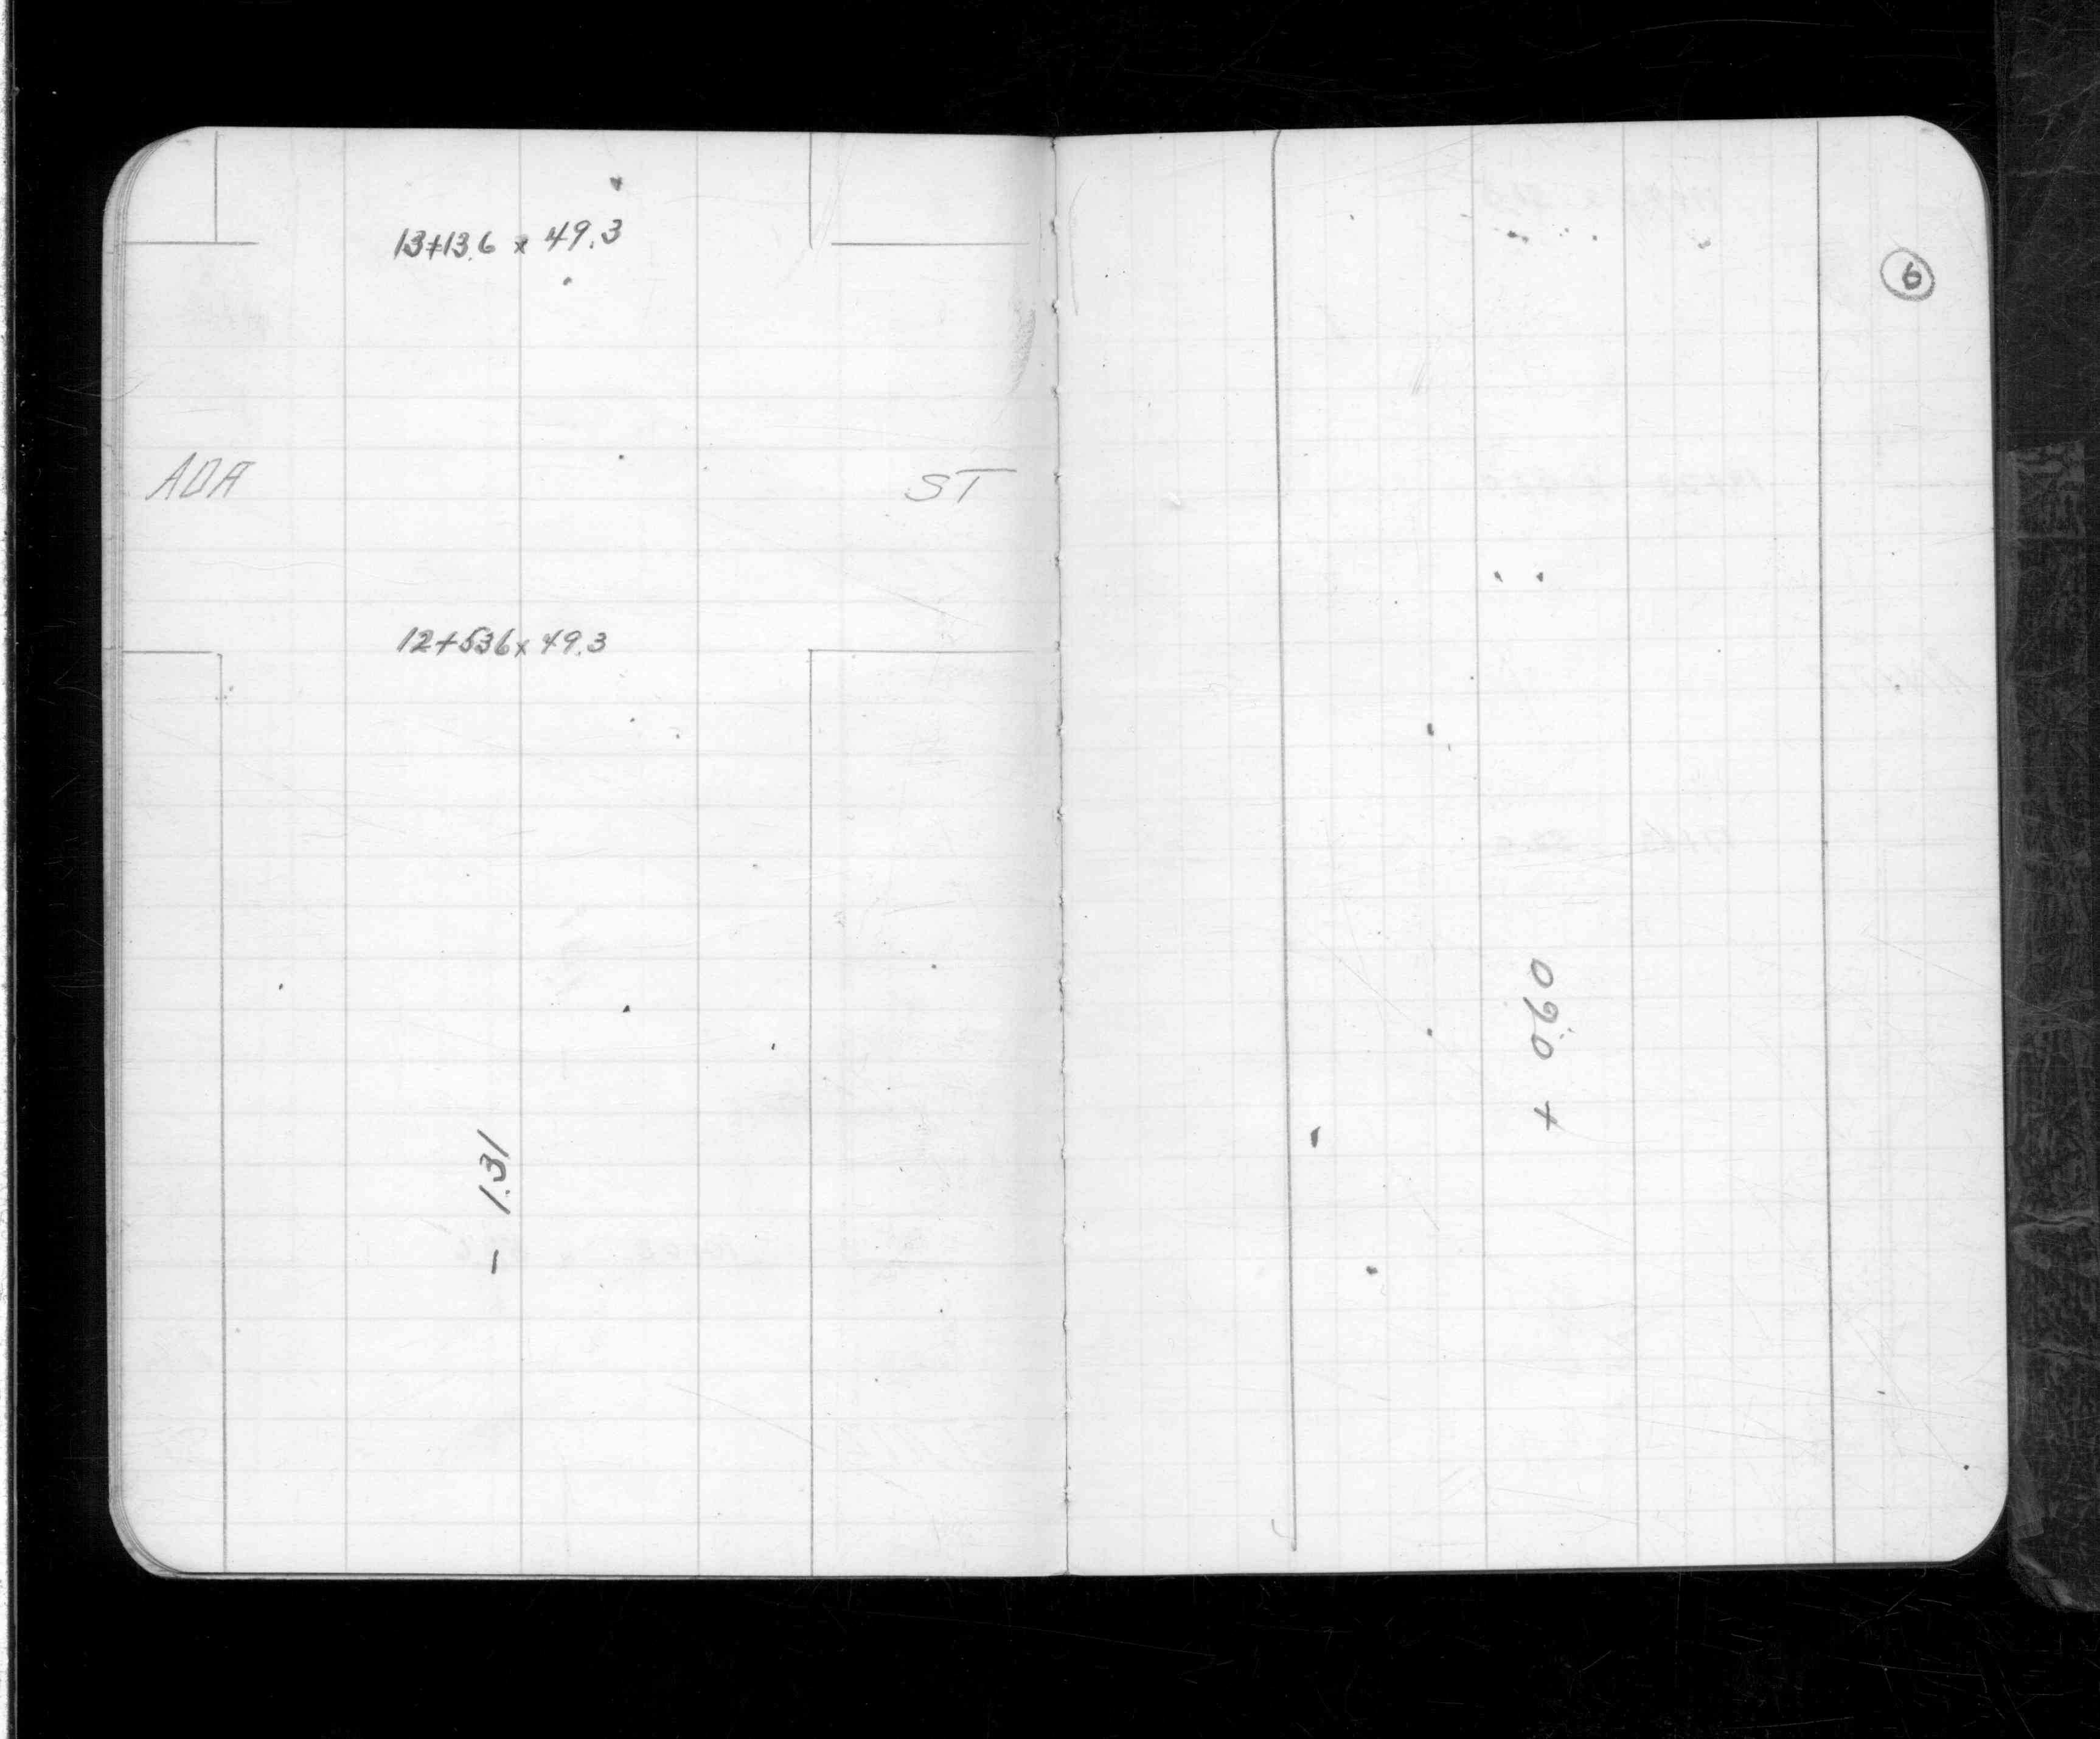 13+13.6 x 49.3
ADA ST
12+53.6 x 49.3
- 1.31
6
+ 0.90